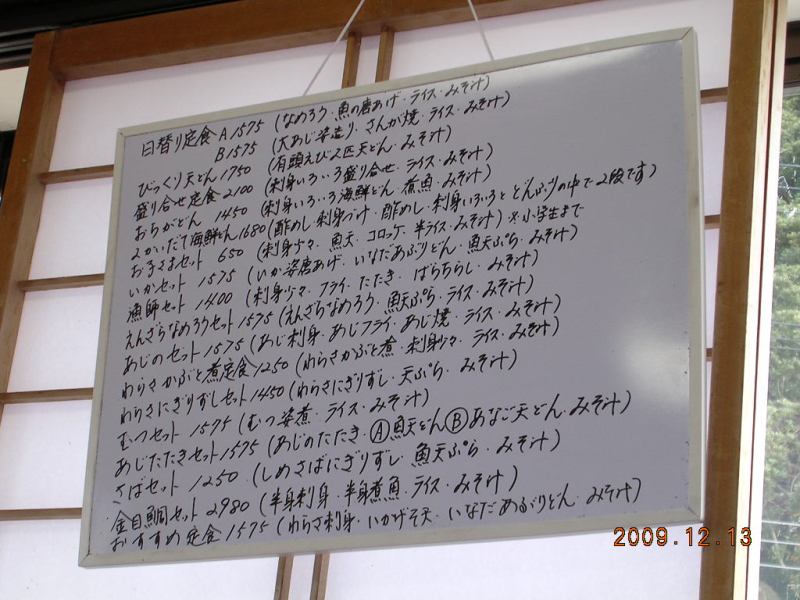 日替り定食A 1575 (なめろう・魚の唐あげ・ライス・みそ汁)
B 1575 (大あじ姿造り・さんが焼・ライス・みそ汁)
びっくり天どん 1750 (有頭えび2匹天どん・みそ汁)
盛り合せ定食 2100 (刺身いろいろ盛り合せ・ライス・みそ汁)
おらがどん 1450 (刺身いろいろ海鮮どん・煮魚・みそ汁)
2かいだて海鮮どん 1680 (酢めし・刺身づけ・酢めし・刺身いろいろとどんぶりの中で2段です)
お子さまセット 650 (刺身少々・魚天・コロッケ・半ライス・みそ汁) ※小学生まで
いかセット 1575 (いか姿唐あげ・いなだあぶりどん・魚天ぷら・みそ汁)
漁師セット 1400 (刺身少々・フライ・たたき・ばらちらし・みそ汁)
えんざらなめろうセット 1575 (えんざらなめろう・魚天ぷら・ライス・みそ汁)
あじのセット 1575 (あじ刺身・あじフライ・あじ焼・ライス・みそ汁)
わらさかぶと煮定食 1250 (わらさかぶと煮・刺身少々・ライス・みそ汁)
わらさにぎりずしセット 1450 (わらさにぎりずし・天ぷら・みそ汁)
むつセット 1575 (むつ姿煮・ライス・みそ汁)
あじたたきセット 1575 (あじのたたき・Ⓐ魚天どんⒷあなご天どん・みそ汁)
さばセット 1250 (しめさばにぎりずし・魚天ぷら・みそ汁)
金目鯛セット 2980 (半身刺身・半身煮魚・ライス・みそ汁)
おすすめ定食 1575 (わらさ刺身・いかげそ天・いなだあぶりどん・みそ汁)
2009.12.13